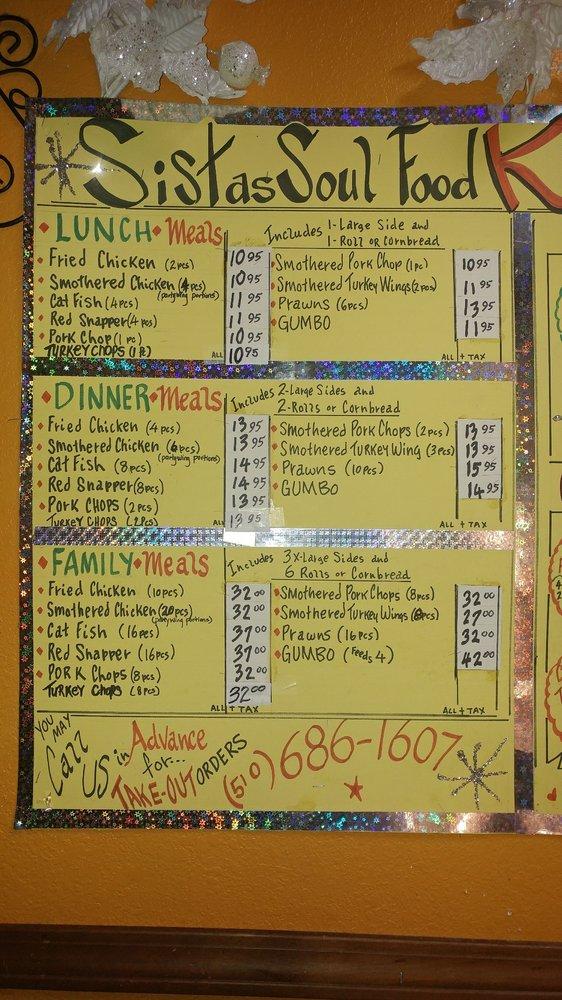 Sistas Soul Food K
LUNCH Meals
Includes 1-Large Side and
1-Roll or Cornbread
Fried Chicken (2pcs) 10 95
Smothered Chicken (4pcs) 10 95
(partywing portions)
Cat Fish (4pcs) 11 95
Red Snapper (4pcs) 11 95
Pork Chop (1pc) 10 95
TURKEY CHOPS (1pc) 10 95
ALL + TAX
Smothered Pork Chop (1pc) 10 95
Smothered Turkey Wings (2pcs) 11 95
Prawns (6pcs) 13 95
GUMBO 11 95
ALL + TAX
DINNER Meals
Includes 2-Large Sides and
2-Rolls or Cornbread
Fried Chicken (4pcs) 13 95
Smothered Chicken (6pcs) 13 95
(partywing portions)
Cat Fish (8pcs) 14 95
Red Snapper (8pcs) 14 95
PORK CHOPS (2pcs) 13 95
TURKEY CHOPS (2pcs) 13 95
Smothered Pork Chops (2pcs) 13 95
Smothered Turkey Wing (3pcs) 13 95
Prawns (10pcs) 15 95
GUMBO 14 95
ALL + TAX
FAMILY Meals
Includes 3x-Large Sides and
6 Rolls or Cornbread
Fried Chicken (10pcs) 32 00
Smothered Chicken (20pcs) 32 00
(partywing portions)
Cat Fish (16pcs) 37 00
Red Snapper (16pcs) 37 00
PORK Chops (8pcs) 32 00
TURKEY Chops (8pcs) 32 00
ALL + TAX
Smothered Pork Chops (8pcs) 32 00
Smothered Turkey Wings (6pcs) 27 00
Prawns (16pcs) 32 00
GUMBO (Feeds 4) 42 00
ALL + TAX
YOU MAY
Call US in Advance
for...
TAKE-OUT ORDERS
(510) 686-1607